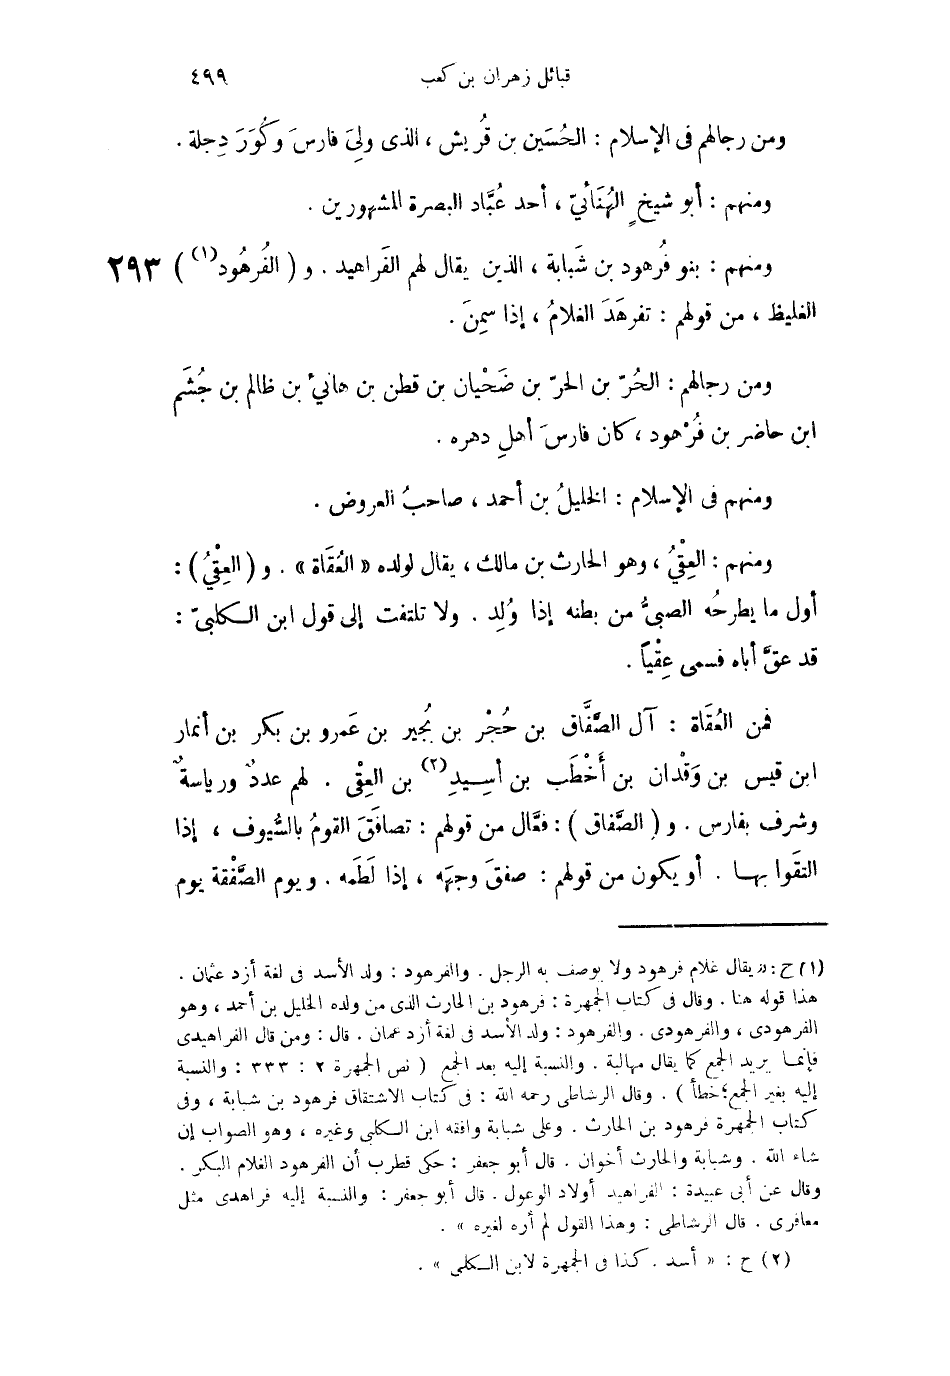 قبائل زهران بن كعب ٤٩٩
ومن رجالهم فى الإسلام : الحُسَين بن قُريش ، الذى ولِىَ فارسَ وكُوَرَ دِجلة .
ومنهم : أبو شيخٍ الهُنَائىّ ، أحد عُبَّاد البصرة المشهورين .
ومنهم : بنو فُرهود بن شَبابة ، الذين يقال لهم الفَراهيد . و ( الفُرهُود(١) ) ٢٩٣
الغليظ ، من قولهم : تفرهَدَ الغلامُ ، إذا سمِنَ .
ومن رجالهم : الحُرّ بن الحرّ بن ضَحْيان بن قطن بن هانئ بن ظالم بن جُشَم
ابن حاضر بن فُرْهود ، كان فارسَ أهلِ دهره .
ومنهم فى الإسلام : الخليلُ بن أحمد ، صاحبُ العروض .
ومنهم : العِقْىُ ، وهو الحارث بن مالك ، يقال لولده « العُقَاة » . و ( العِقْىُ ) :
أول ما يطرحُه الصبىُّ من بطنه إذا وُلِد . ولا تلتفت إلى قول ابن الكلبىّ :
قد عقَّ أباه فسمى عِقْيًا .
فمن العُقَاة : آل الصَّفَّاق بن حُجْر بن بُجَير بن عَمرو بن بكر بن أنمار
ابن قيس بن وَقْدان بن أَخْطَب بن أسِيدٍ(٢) بن العِقْى . لهم عددٌ ورياسةٌ
وشرف بفارس . و ( الصَّفاق ) : فعَّال من قولهم : تصافَقَ القومُ بالسُّيوف ، إذا
التقَوا بها . أو يكون من قولهم : صفقَ وجهَه ، إذا لَطَمه . ويوم الصَّفْقة يوم
(١) ح : « يقال غلام فرهود ولا يوصف به الرجل . والفرهود : ولد الأسد فى لغة أزد عثمان .
هذا قوله هنا . وقال فى كتاب الجمهرة : فرهود بن الحارث الذى من ولده الخليل بن أحمد ، وهو
الفرهودى ، والفرهودى . والفرهود : ولد الأسد فى لغة أزد عمان . قال : ومن قال الفراهيدى
فإنما يريد الجمع كما يقال مهالبة . والنسبة إليه بعد الجمع ( نص الجمهرة ٢ : ٣٣٣ : والنسبة
إليه بغير الجمع خطأ ) . وقال الرشاطى رحمه الله : فى كتاب الاشتقاق فرهود بن شبابة ، وفى
كتاب الجمهرة فرهود بن الحارث . وعلى شبابة وافقه ابن الكلبى وغيره ، وهو الصواب إن
شاء الله . وشبابة والحارث أخوان . قال أبو جعفر : حكى قطرب أن الفرهود الغلام البكر .
وقال عن أبى عبيدة : الفراهيد أولاد الوعول . قال أبو جعفر : والنسبة إليه فراهدى مثل
معافرى . قال الرشاطى : وهذا القول لم أره لغيره » .
(٢) ح : « أسد . كذا فى الجمهرة لابن الكلبى » .